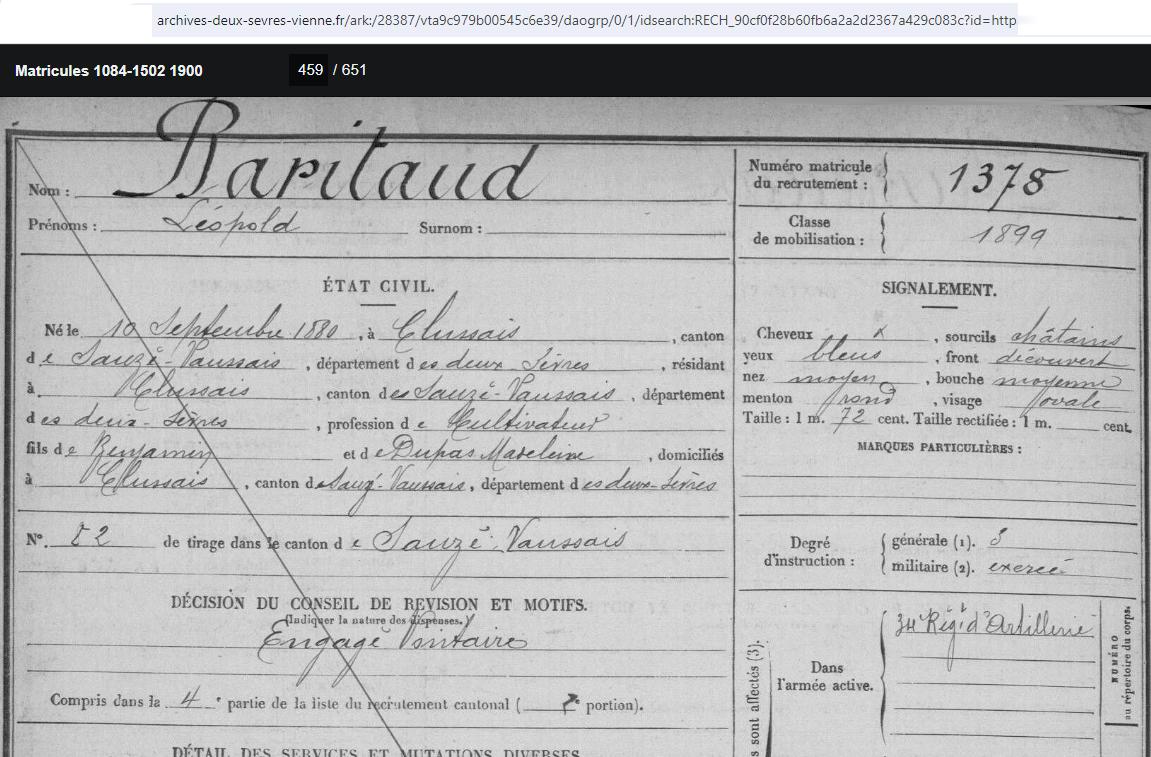 archives-deux-sevres-vienne.fr/ark:/28387/vta9c979b00545c6e39/daogrp/0/1/idsearch:RECH_90cf0f28b60fb6a2a2d2367a429c083c?id=http
Matricules 1084-1502 1900 459 / 651
Nom : Baritaud
Prénoms : Léopold Surnom :
Numéro matricule
du recrutement : 1378
Classe
de mobilisation : 1899
ÉTAT CIVIL.
Né le 10 Septembre 1880, à Clussais, canton
de Sauzé-Vaussais, département des deux Sèvres, résidant
à Clussais, canton de Sauzé-Vaussais, département
des deux-Sèvres, profession de Cultivateur
fils de Benjamin et de Dupas Madeleine, domiciliés
à Clussais, canton de Sauzé-Vaussais, département des deux-Sèvres
N° 82 de tirage dans le canton de Sauzé-Vaussais
DÉCISION DU CONSEIL DE REVISION ET MOTIFS.
(Indiquer la nature des dispenses.)
Engagé Vontaire
Compris dans la 4e partie de la liste du recrutement cantonal ( portion).
DÉTAIL DES SERVICES ET MUTATIONS DIVERSES
SIGNALEMENT.
Cheveux x, sourcils châtains
yeux bleus, front découvert
nez moyen, bouche moyenne
menton rond, visage ovale
Taille : 1 m. 72 cent. Taille rectifiée : 1 m. cent.
MARQUES PARTICULIÈRES :
Degré
d'instruction :
générale (1). 3
militaire (2). exercé
Dans
l'armée active.
34e Régt d'Artillerie
s sont affectés (3).
NUMÉRO
au répertoire du corps.